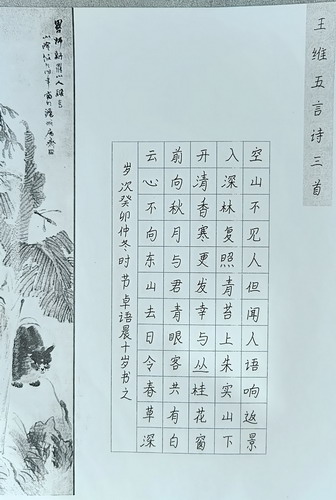 王维五言诗三首
空山不见人但闻人语响返景
入深林复照青苔上朱实山下
开清香寒更发幸与丛桂花窗
前向秋月与君青眼客共有白
云心不向东山去日令春草深
岁次癸卯仲冬时节卓语晨十岁书之